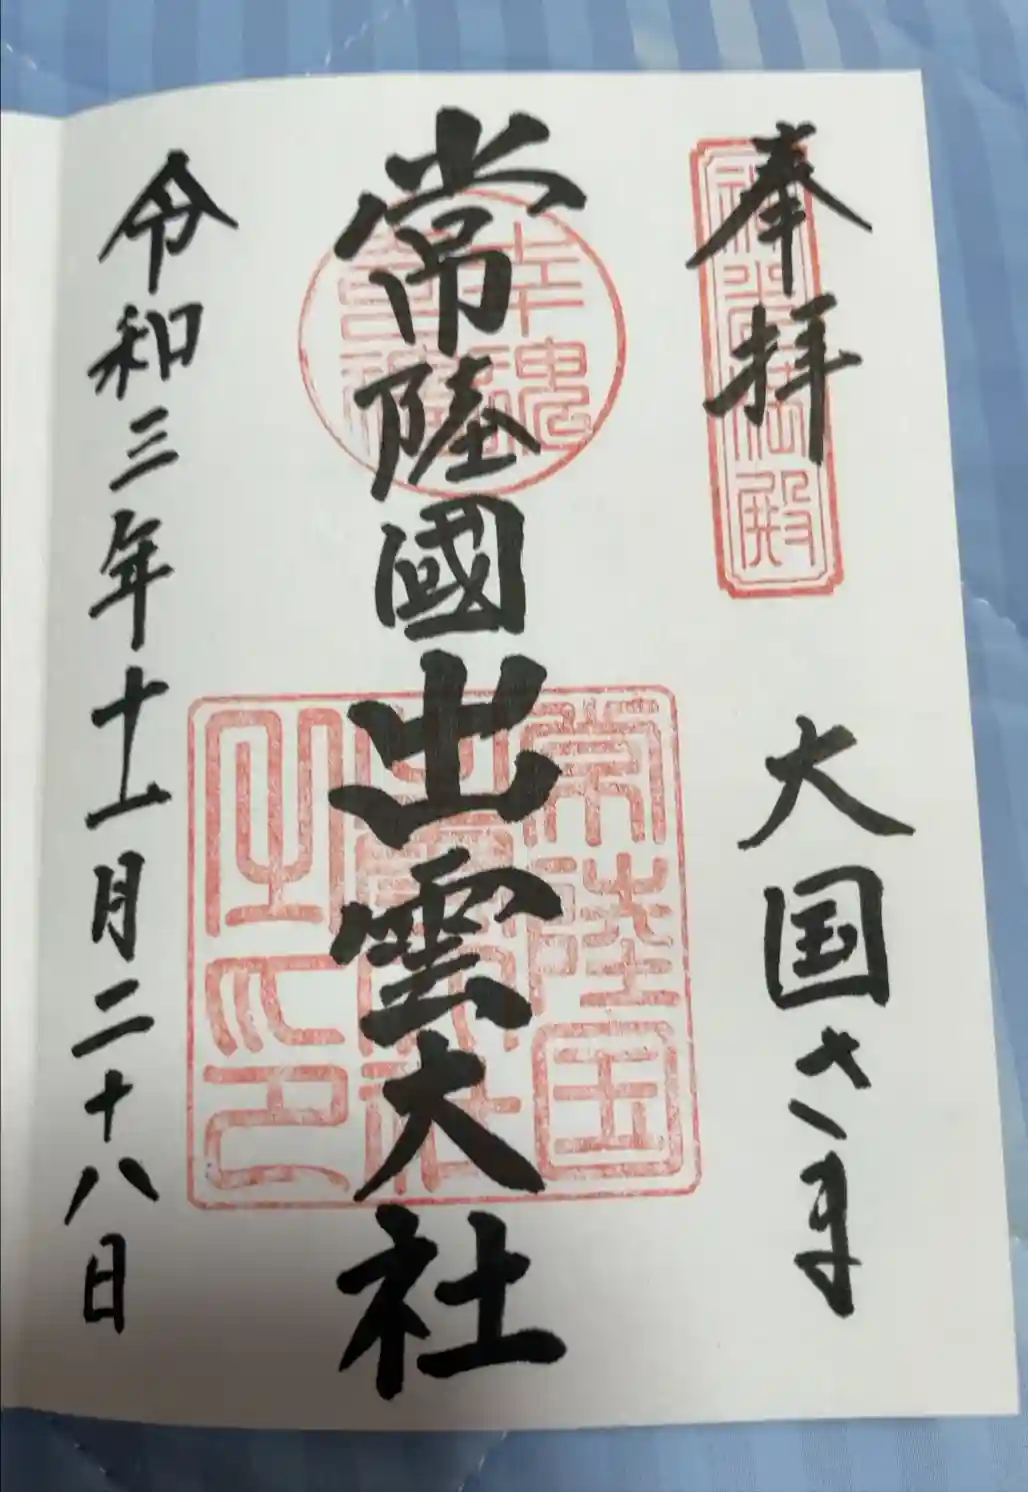 奉拝
大国さま
常陸國出雲大社
幸魂
常陸国
出雲大社
之印
令和三年十一月二十八日